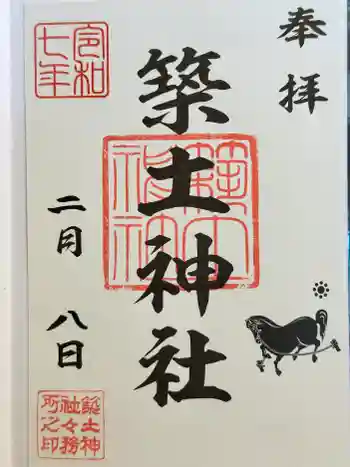 奉拝
築土神社
令和
七年
二月八日
築土神
社々務
所之印